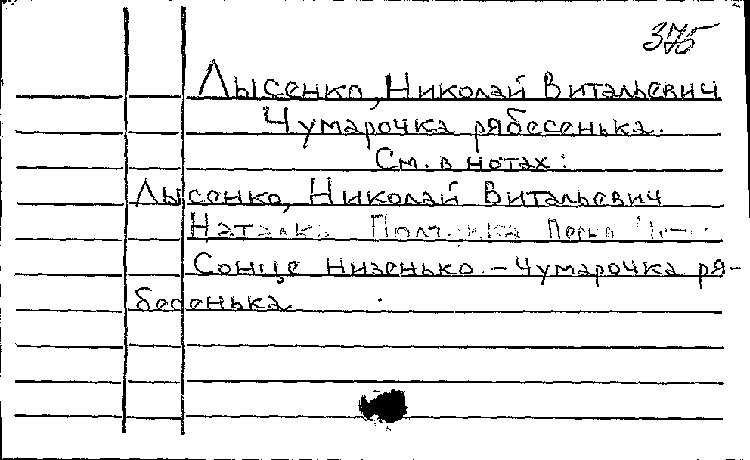 375
Лысенко, Николай Витальевич
Чумарочка рябесенька.
См. в нотах:
Лысенко, Николай Витальевич
Наталка Полтавка
Сонце низенько. – Чумарочка ря-
бесенька.